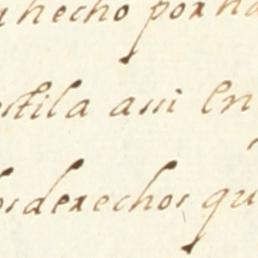 hecho por
stila assi En
os derechos qu